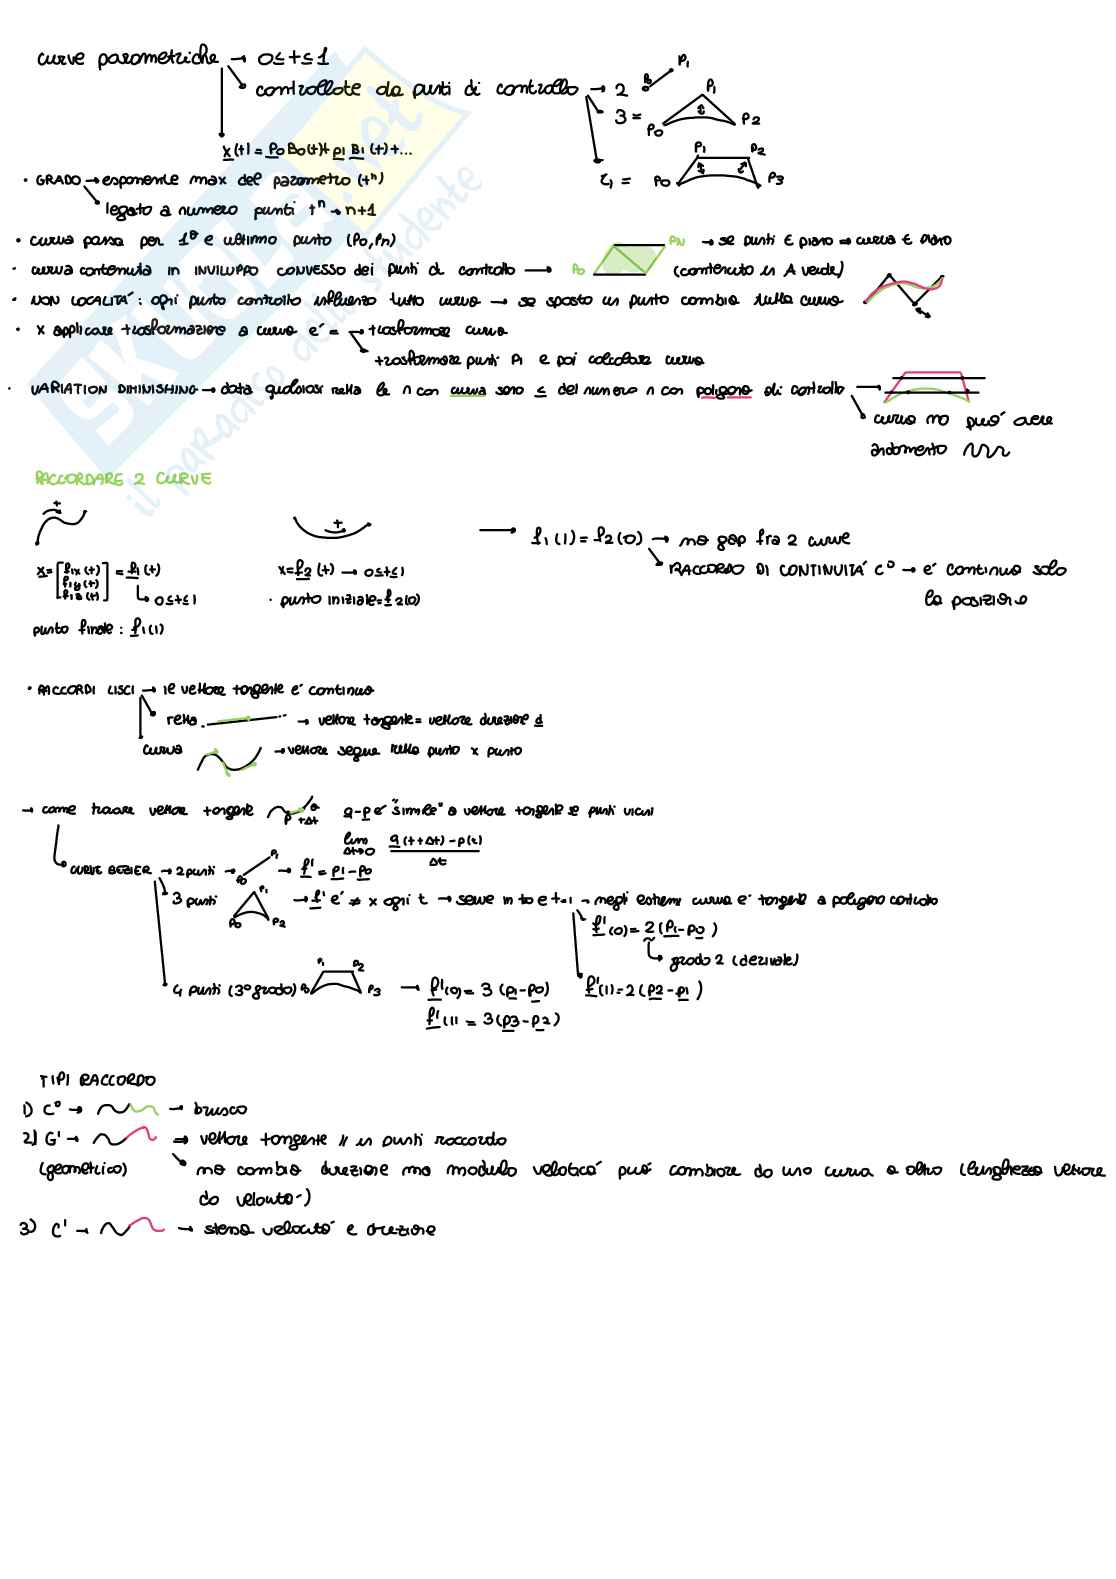 curve parametriche → 0≤t≤1
controllate da punti di controllo → 2 P0 P1
3 = P0 P1 P2
4 = P0 P1 P2 P3
x(t) = P0 B0(t) + P1 B1(t) + ...
· GRADO → esponente max del parametro (tⁿ)
legato a numero punti tⁿ → n+1
· curva passa per 1° e ultimo punto (P0, Pn)
P0 PN → se punti ∈ piano ⇒ curva ∈ piano
· curva contenuta in INVILUPPO CONVESSO dei punti di controllo → (contenuto in A verde)
· NON LOCALITA': ogni punto controllo influenza tutta curva → se sposto un punto cambia tutta curva
· x applicare trasformazione a curva e' = → trasformare curva
trasformare punti Pi e poi calcolare curva
· VARIATION DIMINISHING → data qualsiasi retta le n con curva sono ≤ del numero n con poligono di controllo →
curva no puo' avere
andamento
RACCORDARE 2 CURVE
t
t
→ f1(1) = f2(0) → no gap fra 2 curve
x = [f1x(t) f1y(t) f1z(t)] = f1(t)
x = f2(t) → 0≤t≤1
RACCORDO DI CONTINUITA' C° → e' continua solo
0≤t≤1
· punto iniziale = f2(0)
la posizione
punto finale: f1(1)
· RACCORDI LISCI → le vettore tangente e' continuo
retta → vettore tangente = vettore direzione d
curva → vettore segue retta punto x punto
→ come trovare vettore tangente P t+Δt Q q-p e' "simile" a vettore tangente se punti vicini
lim Δt→0 q(t+Δt) - p(t) / Δt
CURVE BEZIER → 2 punti → P0 P1 → f' = P1 - P0
3 punti P0 P1 P2 → f' e' ≠ x ogni t → serve in t0 e t=1 → negli estremi curva e' tangente a poligono controllo
f'(0) = 2(P1-P0)
grado 2 (derivate)
4 punti (3° grado) P0 P1 P2 P3 → f'(0) = 3(P1-P0)
f'(1) = 2(P2-P1)
f'(1) = 3(P3-P2)
TIPI RACCORDO
1) C° → → brusco
2) G' → ⇒ vettore tangente // in punti raccordo
(geometrico) no cambia direzione ma modulo velocita' puo' cambiare da una curva a altra (lunghezza vettore
da velocita')
3) C' → → stessa velocita' e direzione
SKUOLA.net
il paradiso dello studente